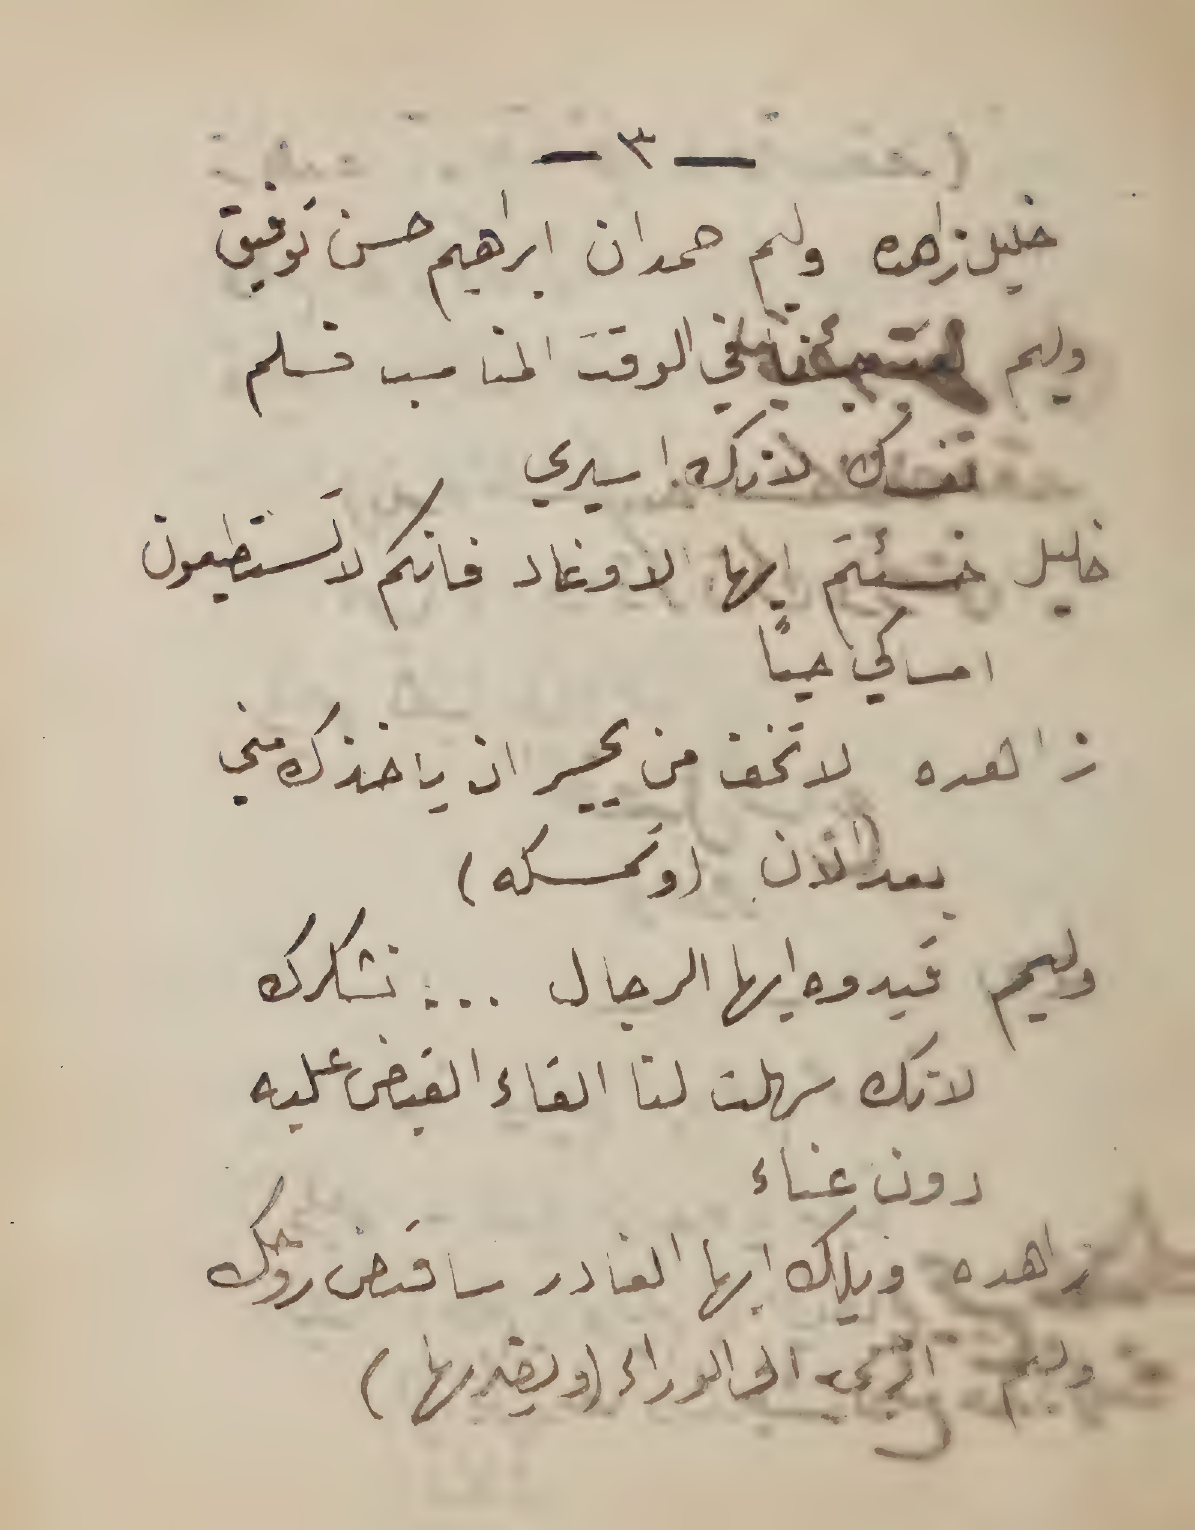 — ٣ —
خليل زاهده وليم حمدان ابراهيم حسن توفيق
وليم في الوقت المناسب فسلم
نفسك لانك اسيري
خليل خسئتم ايها الاوغاد فانكم لا تستطيعون
امساكي حيًا
زاهده لا تخف من يجسر ان ياخذك مني
بعد الان (وتمسكه)
وليم قيدوه ايها الرجال ... نشكرك
لانك سهلت لنا القاء القبض عليه
دون عناء
زاهده ويلك ايها الغادر ساقبض روحك
وليم الى الوراء (ويضربها)